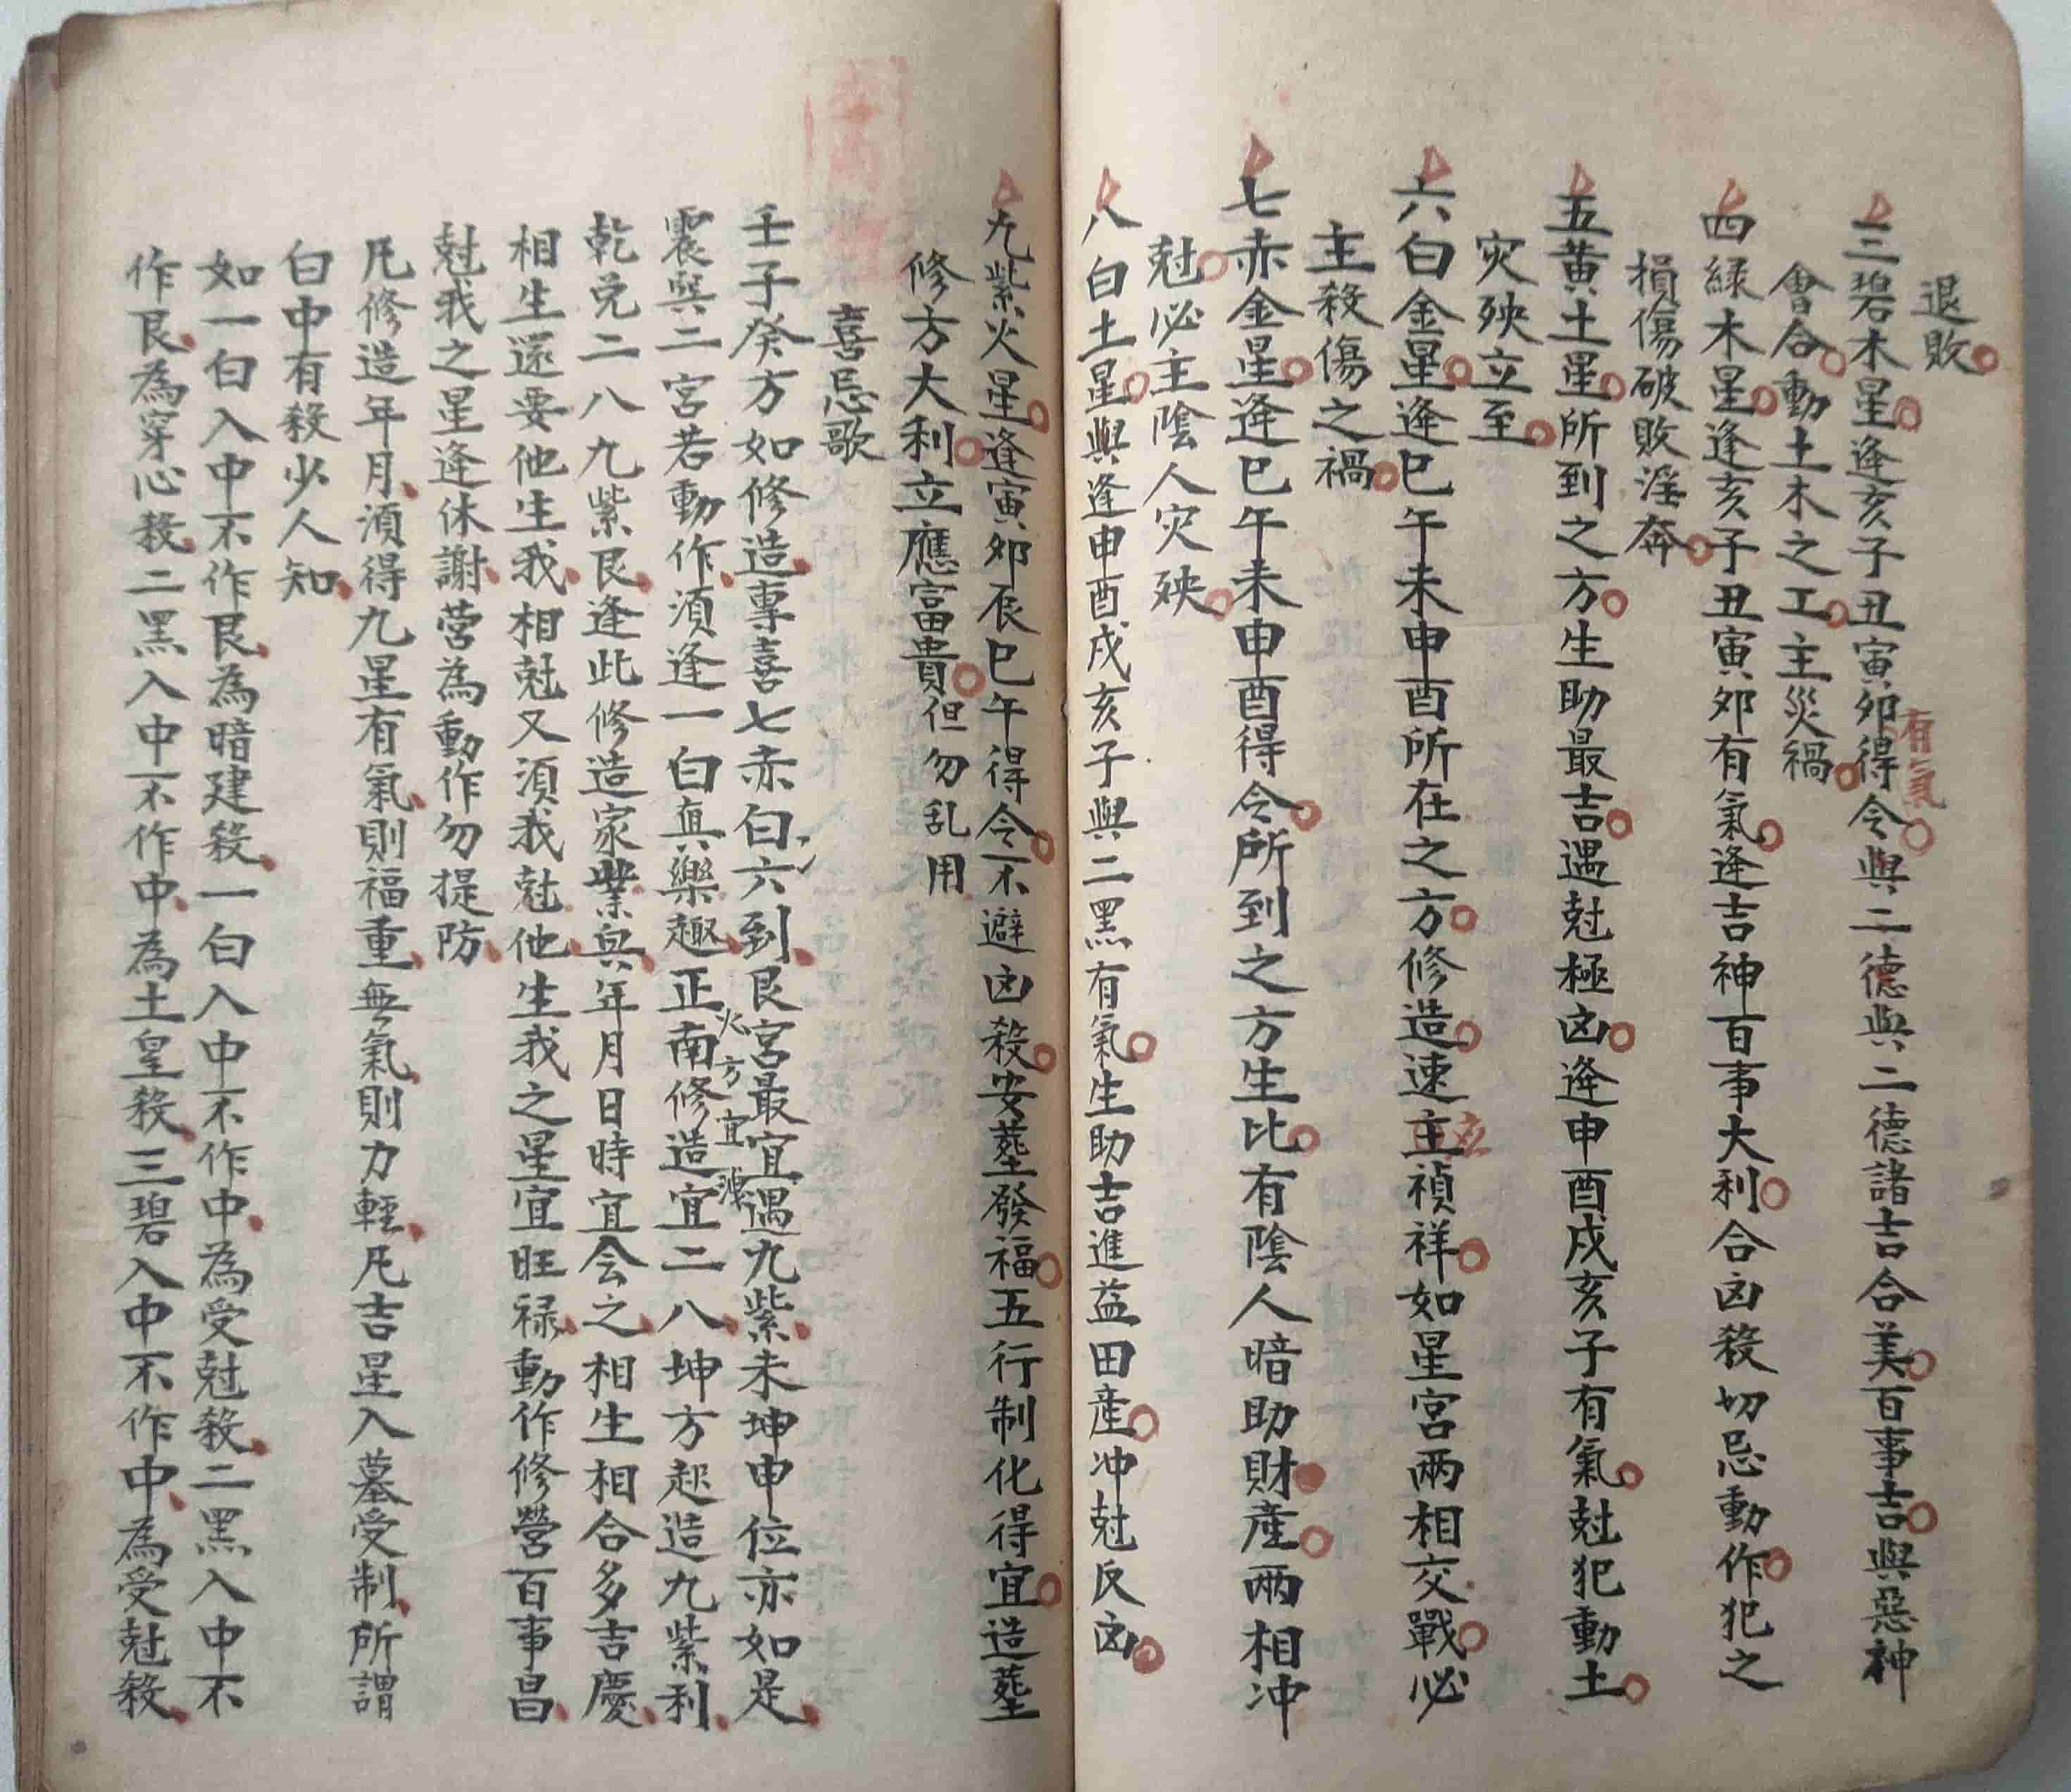 退敗
三碧木星逢亥子丑寅卯得令與二德與二德諸吉合美百事吉與惡神
有氣
會合動土木之工主災禍
四緑木星逢亥子丑寅卯有氣逢吉神百事大利合凶殺切忌動作犯之
損傷破敗淫奔
五黄土星所到之方生助最吉遇尅極凶逢申酉戌亥子有氣尅犯動土
灾殃立至
六白金星逢巳午未申酉所在之方修造速主禎祥如星宮兩相交戰必
立
主殺傷之禍
七赤金星逢巳午未申酉得令所到之方生比有陰人暗助財産兩相冲
尅必主陰人灾殃
八白土星與逢申酉戌亥子與二黑有氣生助吉進益田産冲尅反凶
九紫火星逢寅卯辰巳午得令不避凶殺安塟發福五行制化得宜造塟
修方大利立應富貴但勿乱用
喜忌歌
壬子癸方如修造專喜七赤白六到艮宮最宜遇九紫未坤申位亦如是
震巽二宮若動作須逢一白真樂趣正南修造宜二八坤方起造九紫利
火方宜
乾兑二八九紫艮逢此修造家業興年月日時宜会之相生相合多吉慶
相生還要他生我相尅又須我尅他生我之星宜旺禄動作修營百事昌
尅我之星逢休謝營為動作勿提防
凡修造年月須得九星有氣則福重無氣則力輕凡吉星入墓受制所謂
白中有殺少人知
如一白入中不作艮為暗建殺一白入中不作中為受尅殺二黑入中不
作艮為穿心殺二黑入中不作中為土皇殺三碧入中不作中為受尅殺